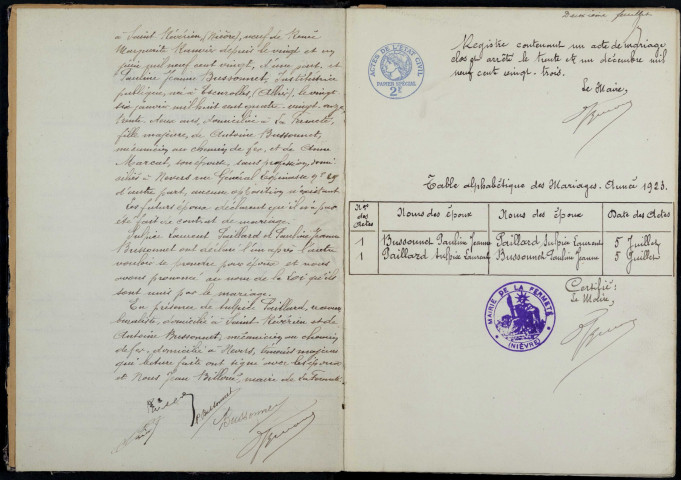 à Saint Révérien, (Nièvre), veuf de Renée
Marguerite depuis le vingt et un
mil neuf cent vingt, d'une part, et
Pauline Jeanne Bussonnet, Institutrice
publique, née à Escurolles, (Allier), le vingt
six janvier mil huit cent quatre-vingt
deux ans, domiciliée à La Fermeté,
fille majeure de Antoine Bussonnet,
mécanicien au chemin de fer, et de Anne
Marcut, son épouse, sans profession, domi-
ciliés à Nevers rue Général Espinasse n° 29
d'autre part, aucune opposition n'existant.
Les futurs époux déclarent qu'il n'a pas
été fait de contrat de mariage.
Sulpice Laurent Paillard et Pauline Jeanne
Bussonnet ont déclaré l'un après l'autre
vouloir se prendre pour époux et nous
avons prononcé au nom de la Loi qu'ils
sont unis par le mariage.
En présence de Sulpice Paillard,
domicilié à Saint Révérien et de
Antoine Bussonnet, mécanicien au chemin
de fer, domicilié à Nevers, témoins majeurs
qui lecture faite ont signé avec les époux
et Nous Jean maire de La Fermeté.
Bussonnet
Bussonnet
Deuxième feuillet
ACTES DE L'ÉTAT CIVIL
PAPIER SPÉCIAL
2F
Registre contenant un acte de mariage
clos et arrêté le trente et un décembre mil
neuf cent vingt-trois.
Le Maire,
Table alphabétique des Mariages. Année 1923.
Nos des Actes Noms des époux Noms des époux Date des Actes
1 Bussonnet Pauline Jeanne Paillard Sulpice Laurent 5 Juillet
1 Paillard Sulpice Laurent Bussonnet Pauline Jeanne 5 Juillet
Certifié:
Le Maire,
MAIRIE DE LA FERMETÉ
(NIÈVRE)